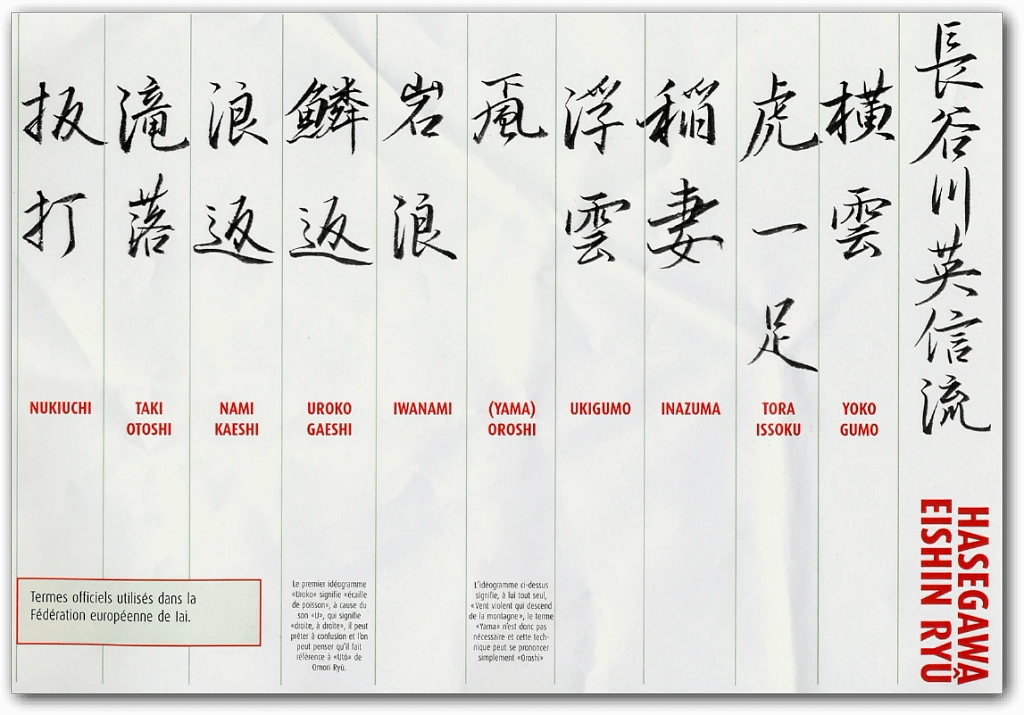 長谷川英信流
HASEGAWA
EISHIN RYÛ
横雲
YOKO
GUMO
虎一足
TORA
ISSOKU
稲妻
INAZUMA
浮雲
UKIGUMO
颪
(YAMA)
OROSHI
L'idéogramme ci-dessus
signifie, à lui tout seul,
«Vent violent qui descend
de la montagne», le terme
«Yama» n'est donc pas
nécessaire et cette tech-
nique peut se prononcer
simplement «Oroshi»
岩浪
IWANAMI
鱗返
UROKO
GAESHI
Le premier idéogramme
«Uroko» signifie «écaille
de poisson», à cause du
son «U», qui signifie
«droite, à droite», il peut
prêter à confusion et l'on
peut penser qu'il fait
référence à «Utô» de
Omori Ryû.
浪返
NAMI
KAESHI
滝落
TAKI
OTOSHI
抜打
NUKIUCHI
Termes officiels utilisés dans la
Fédération européenne de Iai.